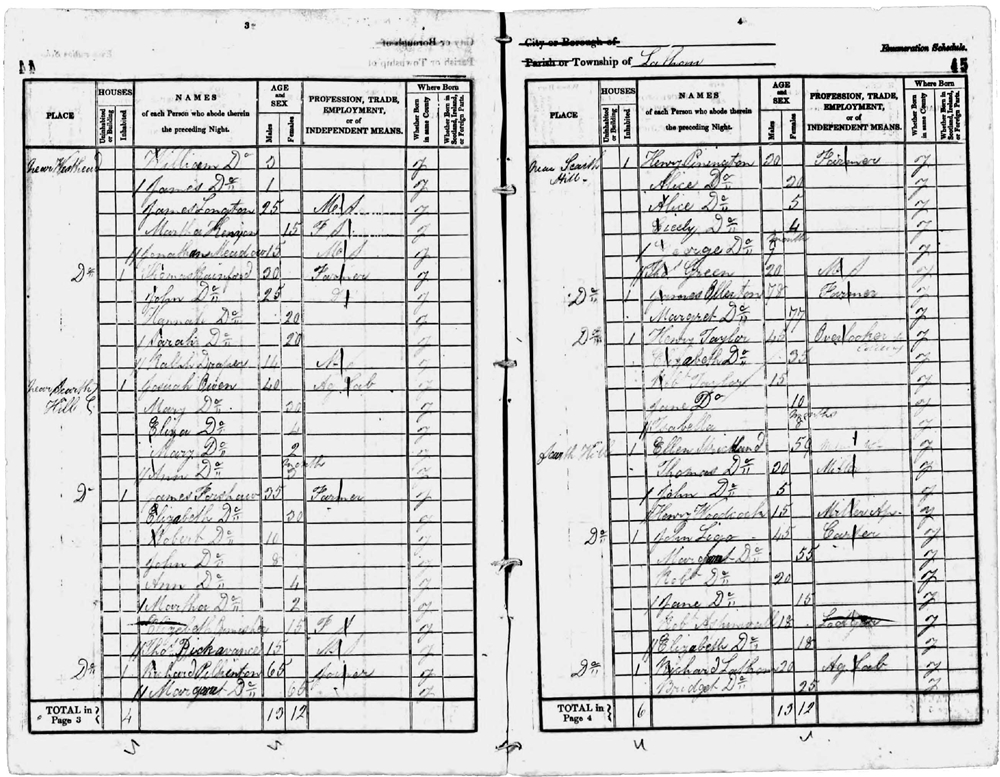 3
City or Borough of
Parish or Township of
44
PLACE
HOUSES
Uninhabited or Building
Inhabited
NAMES
of each Person who abode therein
the preceding Night.
AGE
and
SEX
Males
Females
PROFESSION, TRADE,
EMPLOYMENT,
or of
INDEPENDENT MEANS.
Where Born
Whether Born in same County
Whether Born in Scotland, Ireland, or Foreign Parts.
William Do 2 y
James Do 1 y
James Longton 25 M S y
Martha 15 F S y
Jonathan Meadow 15 M S y
Do 1 Thomas Rainford 20 Farmer y
John Do 25 y
Hannah Do 20 y
Sarah Do 20 y
Ralph Draper 14 y
Near Scarth Hill 1 Josiah Owen 40 Ag Lab y
Mary Do 30 y
Eliza Do 4 y
Mary Do 2 y
Ann Do months y
Do 1 James Forshaw 35 Farmer y
Elizabeth Do 30 y
Robert Do 10 y
John Do 8 y
Ann Do 4 y
Martha Do 2 y
Elizabeth 15 F S y
Thos Pickavance 15 M S y
Do 1 Richard Pilkinton 65 y
Margaret Do 65 y
TOTAL in Page 3 4 13 12
4
City or Borough of
Parish or Township of Lathom
Enumeration Schedule.
45
PLACE
HOUSES
Uninhabited or Building
Inhabited
NAMES
of each Person who abode therein
the preceding Night.
AGE
and
SEX
Males
Females
PROFESSION, TRADE,
EMPLOYMENT,
or of
INDEPENDENT MEANS.
Where Born
Whether Born in same County
Whether Born in Scotland, Ireland, or Foreign Parts.
Near Scarth Hill 1 Henry Pinington 30 Farmer y
Alice Do 30 y
Alice Do 5 y
Cicily Do 4 y
George Do month y
Thos Green 20 M S y
Do 1 James Ollerton 78 Farmer y
Margret Do 77 y
Do 1 Henry Taylor 45 Overlooker y
Elizabeth Do 35 y
Robt Taylor 15 y
Jane Do 10 y
Isabella months y
Scarth Hill 1 Ellen Strickland 59 y
Thomas Do 20 y
John Do 5 y
Henry Woodcock 15 y
Do 1 John 45 Carter y
Margaret Do 55 y
Robt Do 20 y
Jane Do 15 y
Robt 18 y
Elizabeth Do 18 y
Do 1 Richard Lathom 20 Ag Lab y
Bridget Do 25 y
TOTAL in Page 4 6 13 12